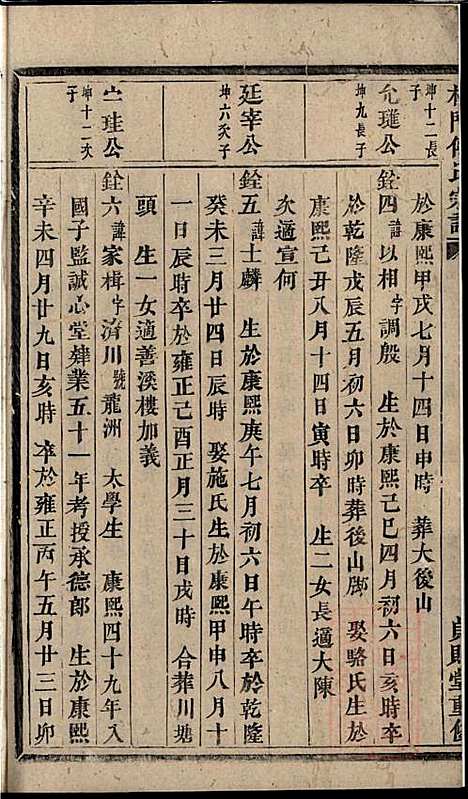 氏宗譜
堂重修
坤十二長子
於康熙甲戌七月十四日申時 葬大後山
允璡公 坤九長子
銓四 諱以相 字調殷 生於康熙己巳四月初六日亥時卒
於乾隆戊辰五月初六日卯時葬後山脚 娶駱氏生於
康熙己丑八月十四日寅時卒 生二女長適大陳
次適宣何
廷宰公 坤六次子
銓五 諱士麟 生於康熙庚午七月初六日午時卒於乾隆
癸未三月廿四日辰時 娶施氏生於康熙甲申八月十
一日辰時卒於雍正己酉正月三十日戌時 合葬川塘
頭 生一女適善溪樓加義
珪公 坤十二次子
銓六 諱家楫 字濟川 號龍洲 太學生 康熙四十九年入
國子監誠心堂肄業五十一年考授承德郎 生於康熙
辛未四月廿九日亥時 卒於雍正丙午五月廿三日卯